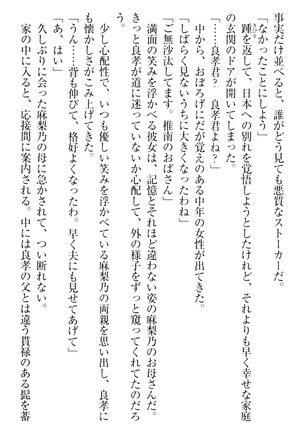 事実だけ並べると、誰がどう見ても悪質なストーカーだ。
「なかったことにしよう」
踵を返して、日本への別れを覚悟しようとしたけれど、それよりも早く幸せな家庭
の玄関のドアが開いてしまった。
「……良孝君？　良孝君よね？」
中から、おぼろげにだが覚えのある中年の女性が出てきた。
「しばらく見ないうちに大きくなったわね」
「ご無沙汰してます。椎南のおばさん」
満面の笑みを浮かべる彼女は、記憶とそれほど違わない姿の麻梨乃のお母さんだ。
きっと良孝が道に迷っていないか心配して、外の様子をずっと窺ってくれてたのだろ
う。
少し心配性で、いつも優しい笑みを浮かべている麻梨乃の両親を思い出し、良孝に
も懐かしさがこみ上げてきた。
「うん……背も伸びて、格好よくなったわ。早く夫にも見せてあげて」
「あ、はい」
久しぶりに会った麻梨乃の母に急かされて、つい断れない。
家の中に入ると、応接間に案内される。中には良孝の父とは違う貫禄のある髭を蓄